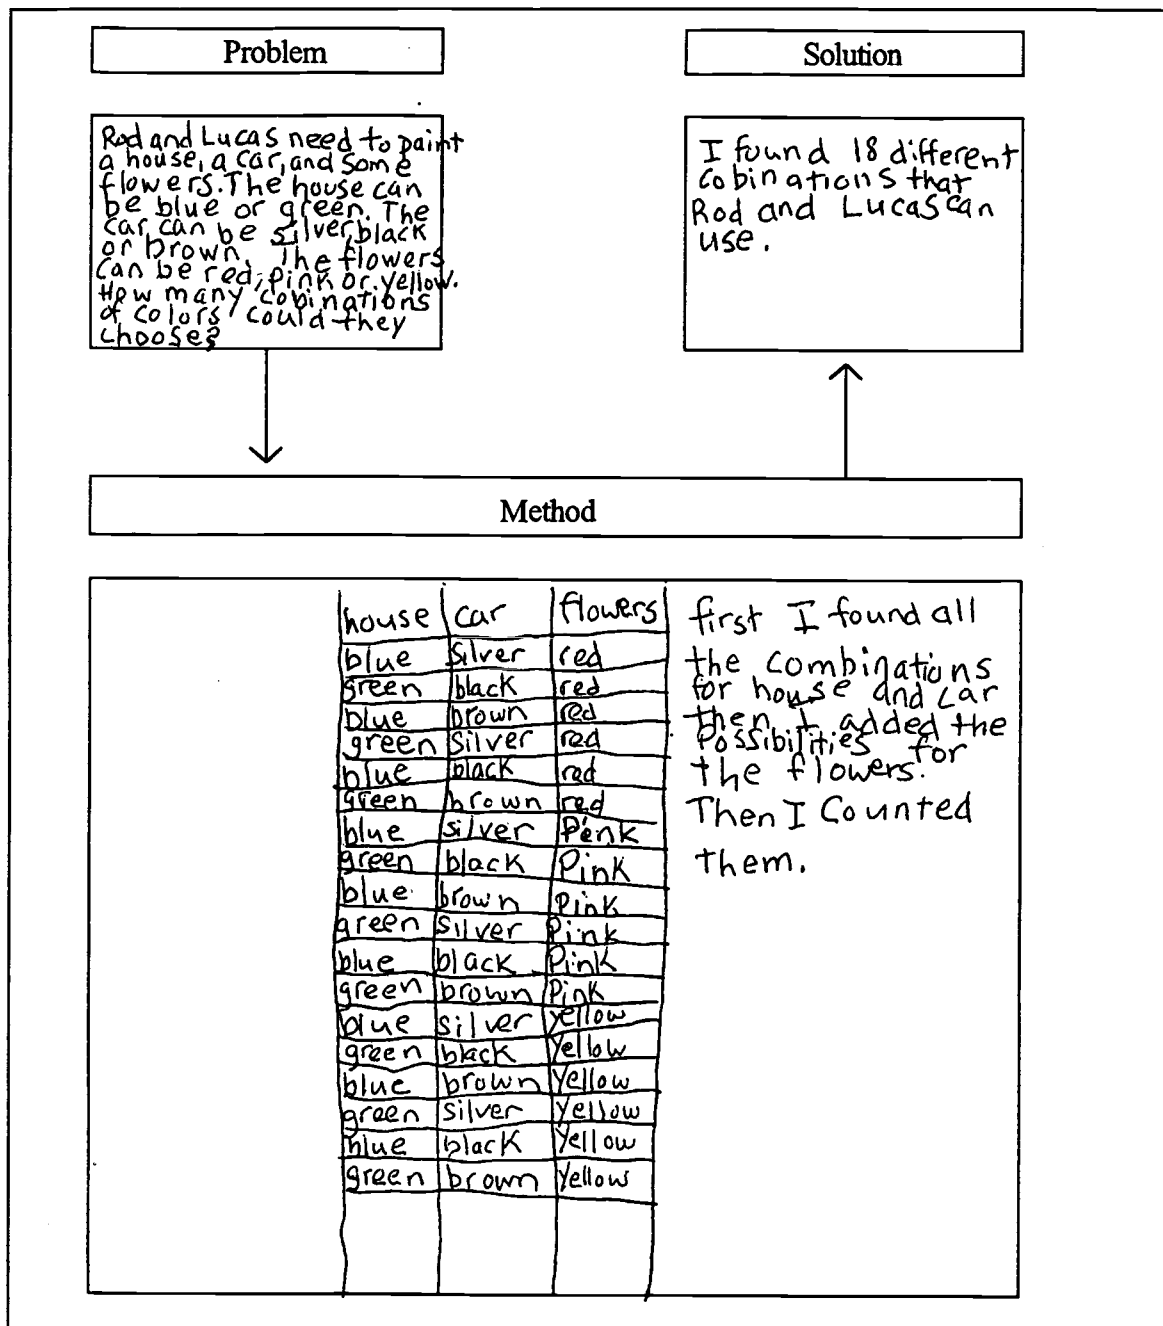 Problem
Solution
Rod and Lucas need to paint
a house, a car, and some
flowers. The house can
be blue or green. The
car can be silver, black
or brown. The flowers
can be red, pink or yellow.
How many cobinations
of colors could they
choose?
I found 18 different
cobinations that
Rod and Lucas can
use.
Method
house car flowers
blue silver red
green black red
blue brown red
green silver red
blue black red
green brown red
blue silver Pink
green black Pink
blue brown Pink
green silver Pink
blue black Pink
green brown Pink
blue silver yellow
green black yellow
blue brown yellow
green silver yellow
blue black yellow
green brown yellow
first I found all
the combinations
for house and car
then I added the
Possibilities for
the flowers.
Then I Counted
them.